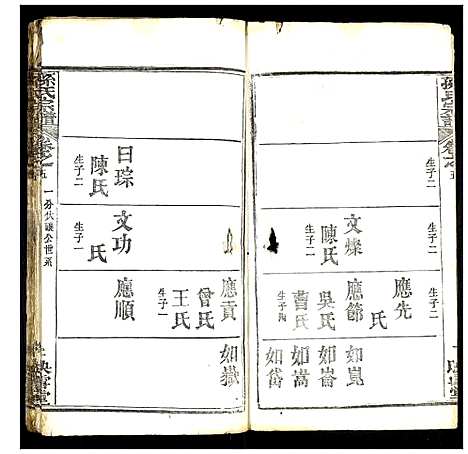 孫氏宗譜
卷之五
生子二
生子二
生子二
文燦
陳氏
生子二
應先
氏
應節
吳氏
曹氏
生子四
如崑
如崙
如嵩
如岱
映雪堂
應貢
曾氏
王氏
生子一
應順
如嶽
文功
氏
生子二
曰琮
陳氏
生子二
孫氏宗譜
卷之五
世系
映雪堂